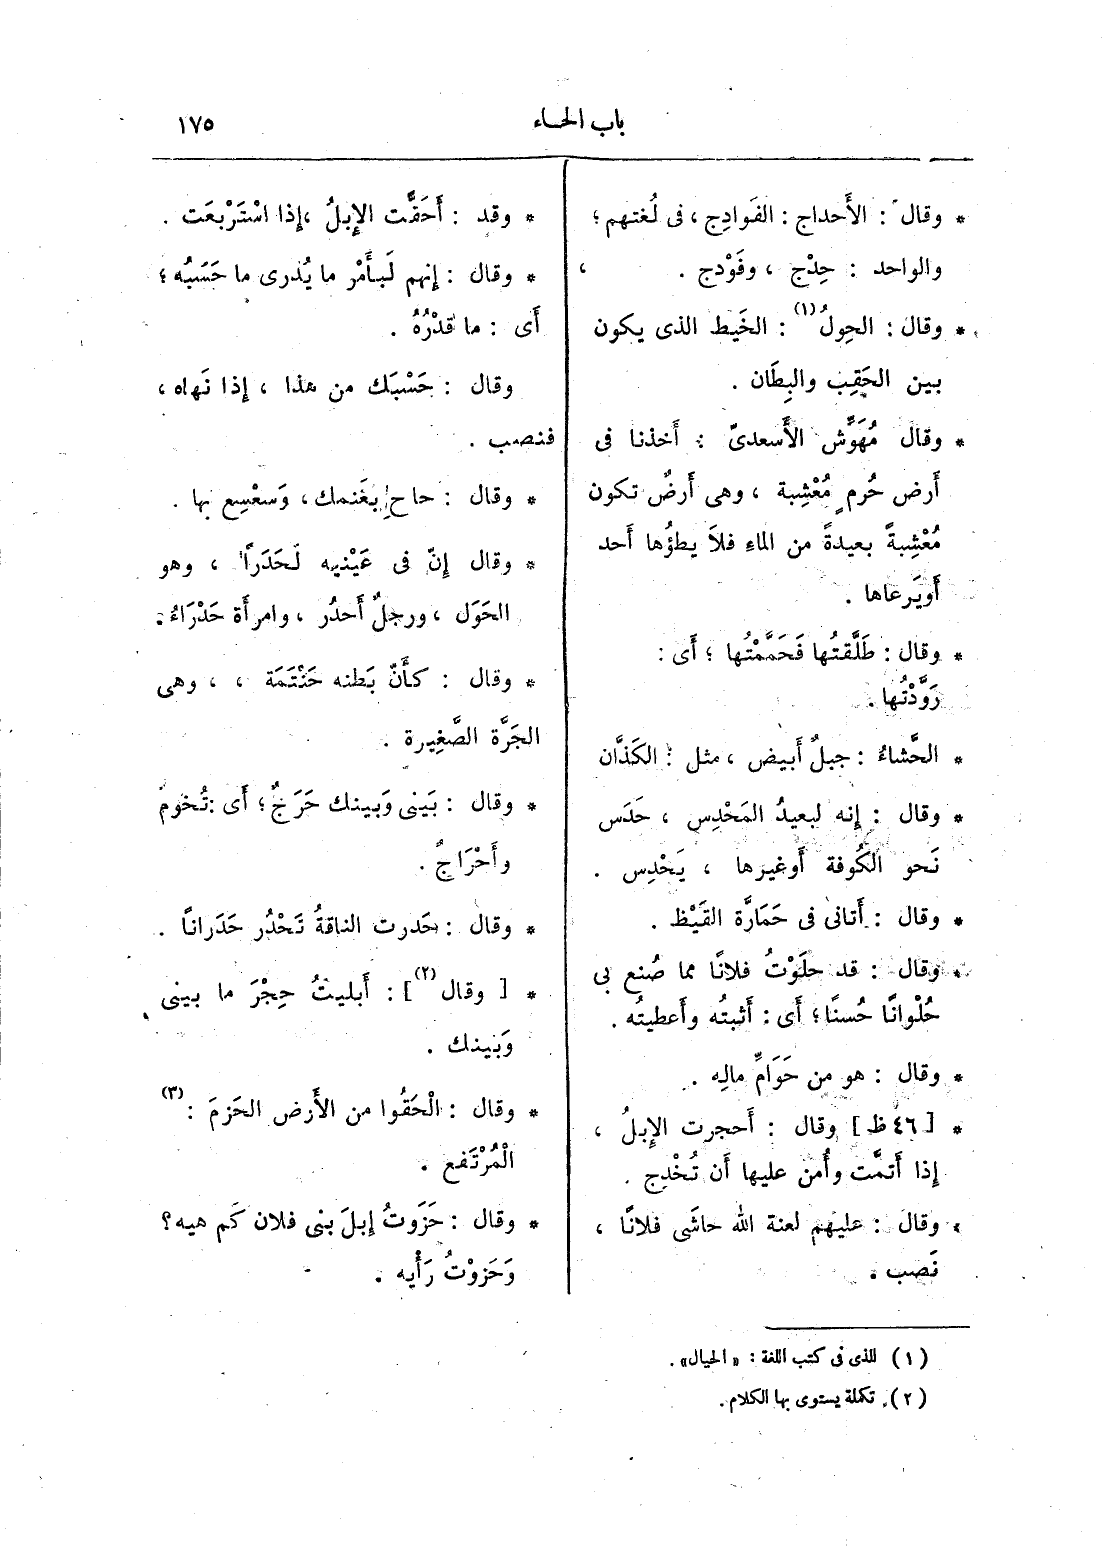 باب الحاء
١٧٥
* وقال : الأَحداج : الفَوادِج ، فى لُغتهم ؛
والواحد : حِدْج ، وفَوْدج .
* وقال : الحِولُ (١) : الخَيط الذى يكون
بين الحَقِب والبِطَان .
* وقال مُهَوِّش الأَسعدىّ : أَخذنا فى
أَرض حُرمٍ مُعْشِبة ، وهى أَرضٌ تكون
مُعْشِبةً بعيدةً من الماءِ فلاَ يطؤُها أَحد
أَويَرعاها .
* وقال : طَلَّقتُها فَحَمَّمْتُها ؛ أَى :
زَوَّدْتُها .
* الحَّشاءُ : جبلٌ أَبيض ، مثل : الكَذَّان
* وقال : إِنه لبعيدُ المَحْدِس ، حَدَس
نَحو الكُوفة أَوغيرها ، يَحْدِس .
* وقال : أَتانى فى حَمَارَّة القَيْظ .
* وقال : قد حلَوْتُ فلانًا مما صُنع بى
حُلْوانًا حُسنًا ؛ أَى : أَثبتُه وأَعطيتُه .
* وقال : هو من حَوَامِّ مالِه .
* [ ٤٦ ظ ] وقال : أَحجرت الإِبلُ ،
إِذا أَتمَّت وأُمن عليها أَن تُخْدِج .
* وقال : عليهم لعنة الله حاشَى فلانًا ،
نَصب .
* وقد : أَحَقَّت الإِبلُ ، إِذا اسْتَرْبعَت .
* وقال : إِنهم لَبأَمْر ما يُدرى ما حَسَبُه ؛
أَى : ما قدْرُهُ .
وقال : حَسْبَك من هذا ، إِذا نَهاه ،
فنصب .
* وقال : حاحِ بِغَنمك ، وَسعْسِع بها .
* وقال إِنّ فى عَيْنيه لَحَدَرًا ، وهو
الحَوَل ، ورجلٌ أَحدُر ، وامرأَة حَدْرَاءُ .
* وقال : كأَنّ بَطنه حَنْتَمَة ، ، وهى
الجَرَّة الصَّغِيرة .
* وقال : بَينى وَبينك حَرَجٌ ؛ أَى : تُخومٌ
وأَحْرَاجٌ .
* وقال : حَدرت الناقةُ تَحْدُر حَدَرانًا .
* [ وقال (٢) ] : أَبليتُ حِجْرَ ما بينى
وَبينك .
* وقال : الْحَقُوا من الأَرض الحَزمَ : (٣)
الْمُرْتَفع .
* وقال : حَزَوتُ إِبلَ بنى فلان كَم هيه ؟
وَحَزوْتُ رَأْيه .
(١) للذى فى كتب اللغة : « الحيال » .
(٢) تكملة يستوى بها الكلام .